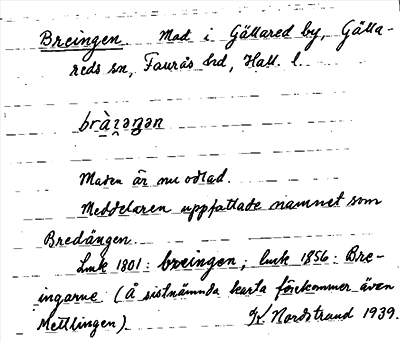 Breingen Mad i Gällared by, Gälla-
reds sn, Faurås hd, Hall. l.
bràɪ̯əŋən
Maden är nu odlad.
Meddelaren uppfattade namnet som
Bredängen.
Lmk 1801: breingen; lmk 1856: Bre-
ingarne (Å sistnämnda karta förekommer även
Mettlingen). K. Nordstrand 1939.